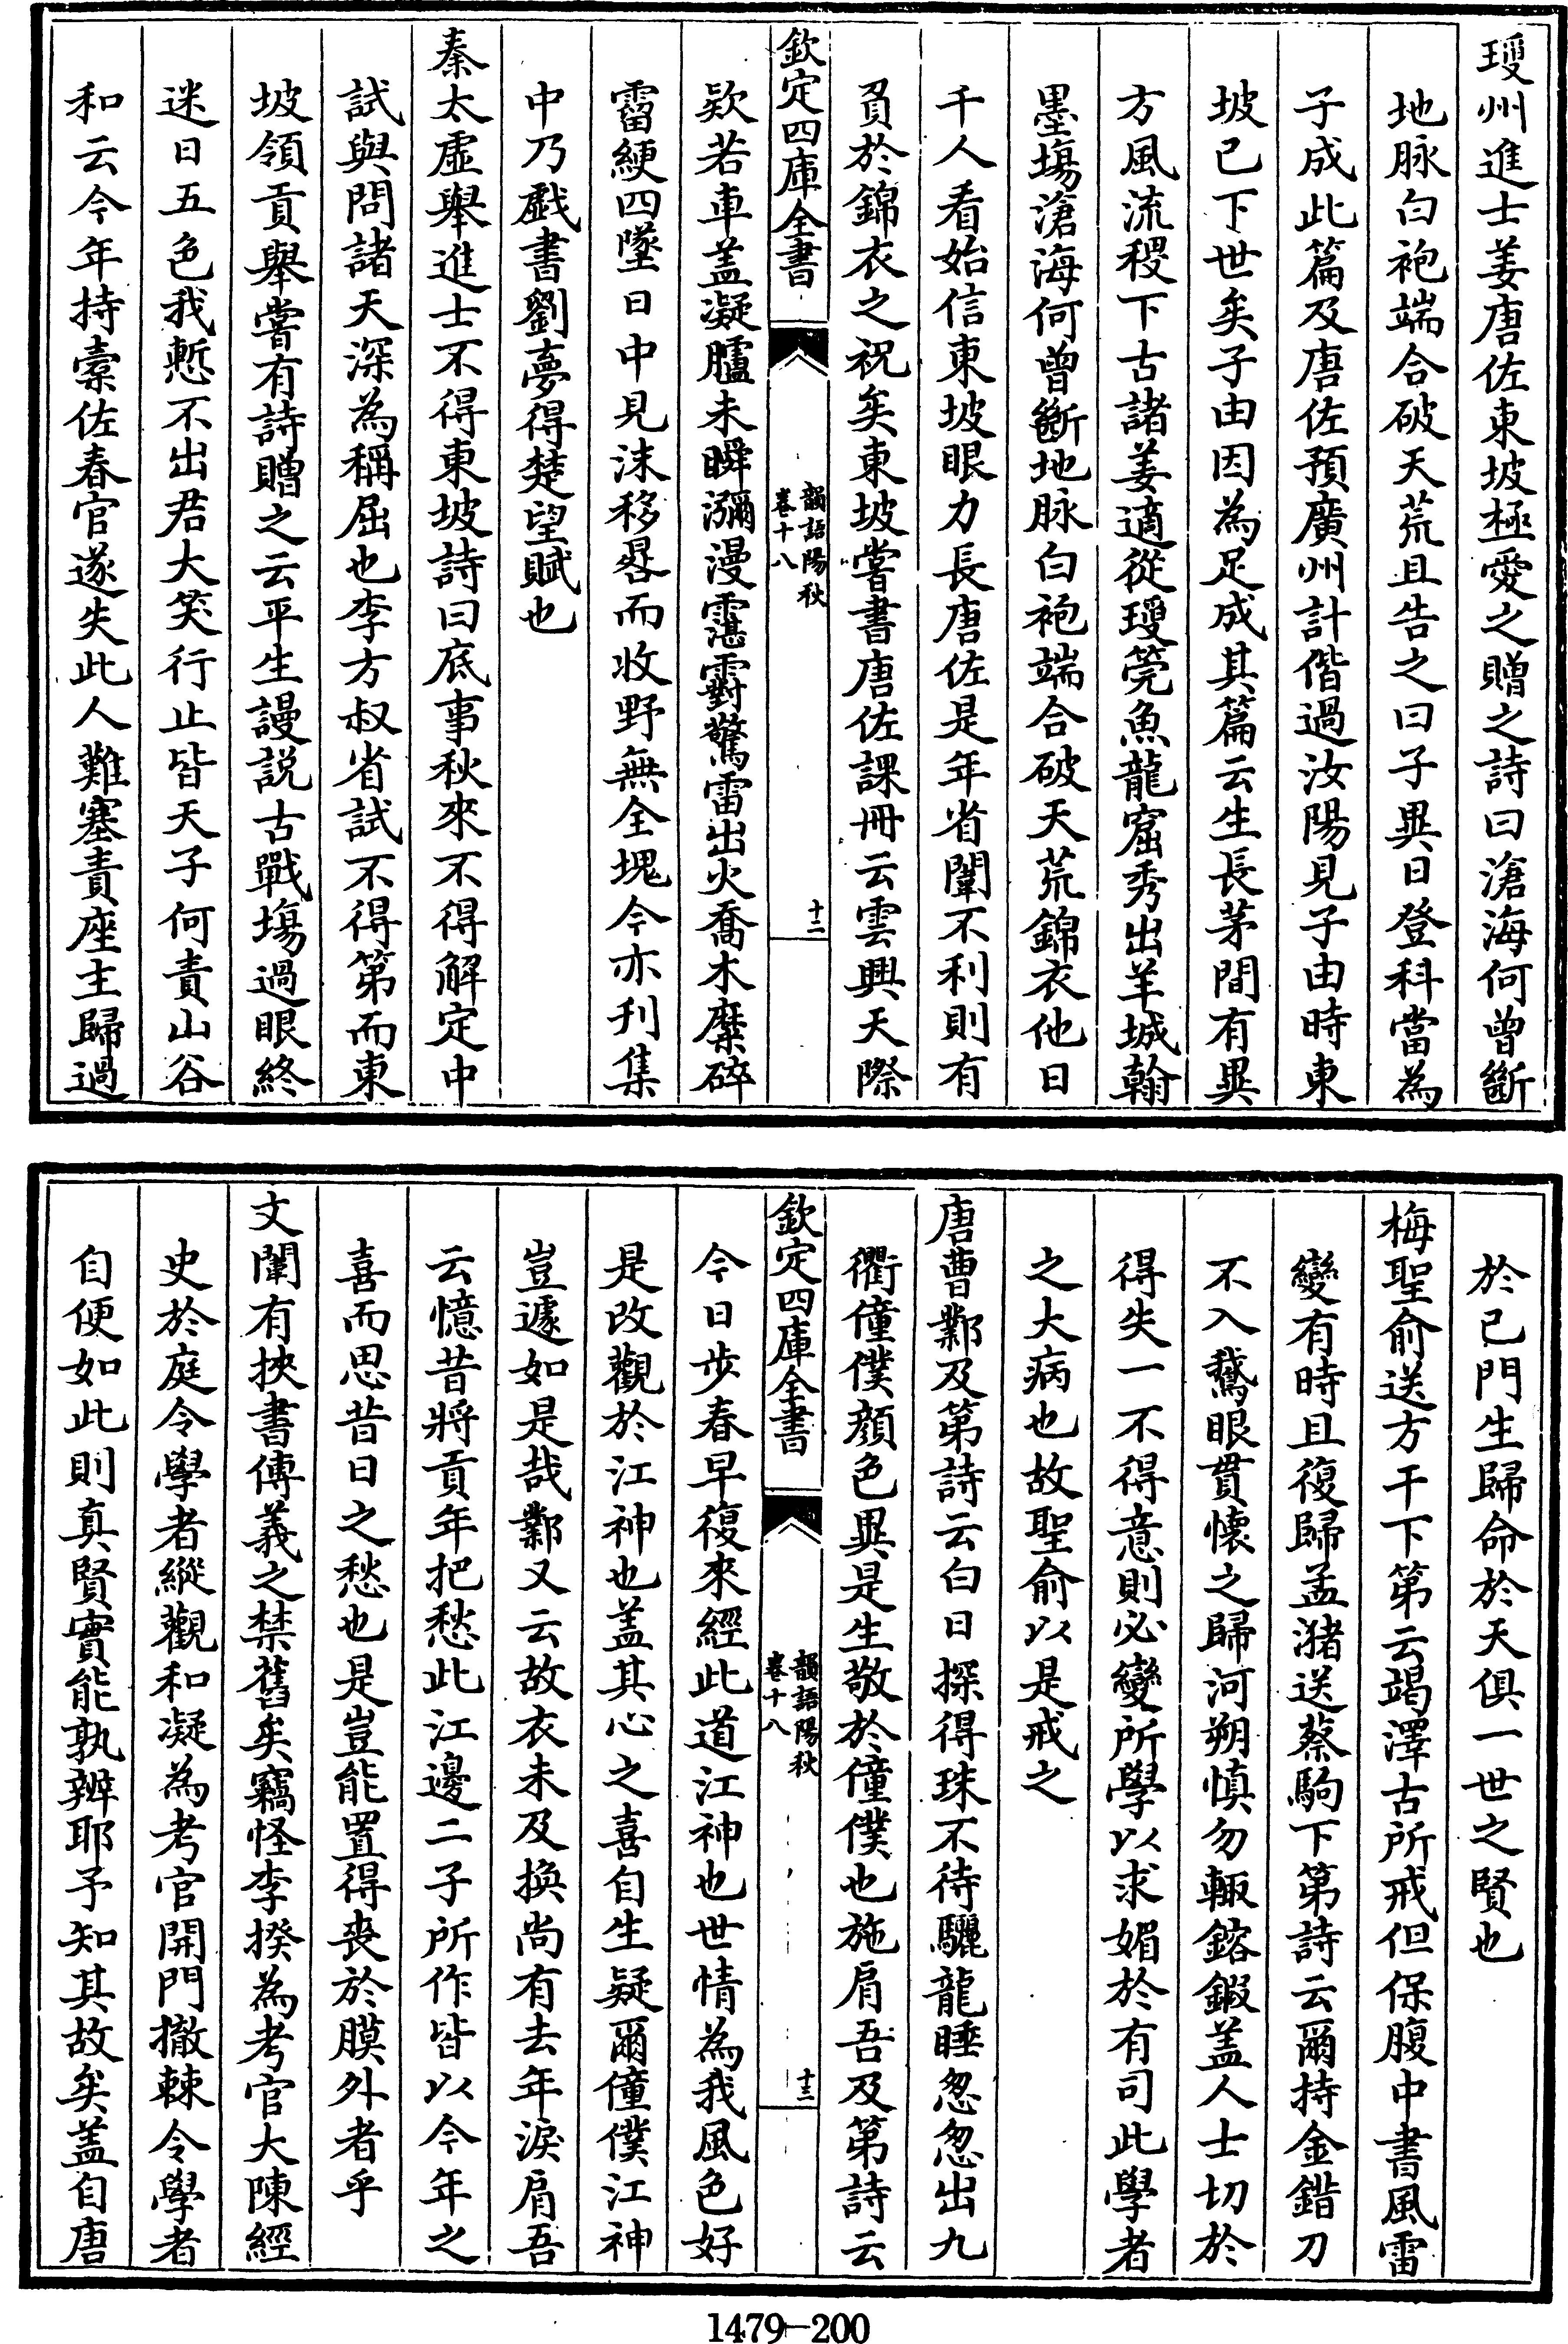 瓊州進士姜唐佐東坡極愛之贈之詩曰滄海何曾斷
地脉白袍端合破天荒且告之曰子異日登科當為
子成此篇及唐佐預廣州計偕過汝陽見子由時東
坡已下世矣子由因為足成其篇云生長茅間有異
方風流稷下古諸姜適從瓊筦魚龍窟秀出羊城翰
墨塲滄海何曾斷地脉白袍端合破天荒錦衣他日
千人看始信東坡眼力長唐佐是年省闈不利則有
負於錦衣之祝矣東坡嘗書唐佐課冊云雲興天際
欽定四庫全書
韻語陽秋
卷十八
十二
欻若車盖凝矑未瞬瀰漫霮䨴驚雷出火喬木糜碎
霤綆四墜日中見沫移晷而收野無全塊今亦刋集
中乃戲書劉夢得楚望賦也
秦太虛舉進士不得東坡詩曰底事秋來不得解定中
試與問諸天深為稱屈也李方叔省試不得第而東
坡領貢舉嘗有詩贈之云平生謾説古戰塲過眼終
迷日五色我慙不出君大笑行止皆天子何責山谷
和云今年持橐佐春官遂失此人難塞責座主歸過
於已門生歸命於天俱一世之賢也
梅聖俞送方干下第云竭澤古所戒但保腹中書風雷
變有時且復歸孟瀦送蔡駒下第詩云爾持金錯刀
不入鵞眼貫懷之歸河朔慎勿輙鎔鍜盖人士切於
得失一不得意則必變所學以求媚於有司此學者
之大病也故聖俞以是戒之
唐曹鄴及第詩云白日探得珠不待驪龍睡忽忽出九
衢僮僕顔色異是生敬於僮僕也施肩吾及第詩云
欽定四庫全書
韻語陽秋
卷十八
十三
今日步春早復來經此道江神也世情為我風色好
是改觀於江神也盖其心之喜自生疑爾僮僕江神
豈遽如是哉鄴又云故衣未及換尚有去年淚肩吾
云憶昔將貢年把愁此江邊二子所作皆以今年之
喜而思昔日之愁也是豈能置得喪於膜外者乎
文闈有挾書傳義之禁舊矣竊怪李揆為考官大陳經
史於庭令學者縱觀和凝為考官開門撤棘令學者
自便如此則真賢實能孰辨耶予知其故矣盖自唐
1479-200